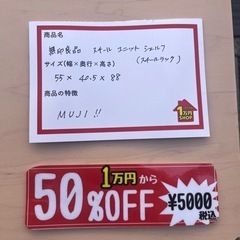 商品名
無印良品 スチール ユニット シェルフ
(スチールラック)
サイズ(幅×奥行×高さ)
55× 40.5× 88
商品の特徴
MUJI!!
1万円
SHOP
1万円から
50%OFF
¥5000
税込